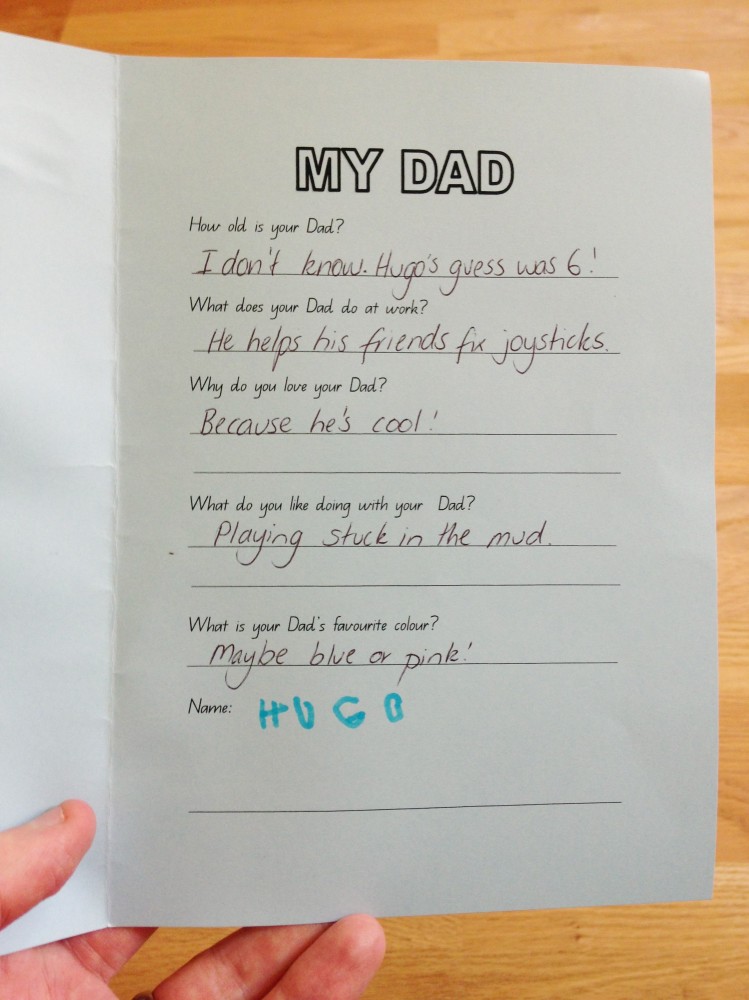 MY DAD
How old is your Dad?
I don't know. Hugo's guess was 6!
What does your Dad do at work?
He helps his friends fix joysticks.
Why do you love your Dad?
Because he's cool!
What do you like doing with your Dad?
Playing stuck in the mud.
What is your Dad's favourite colour?
Maybe blue or pink!
Name: HUGO